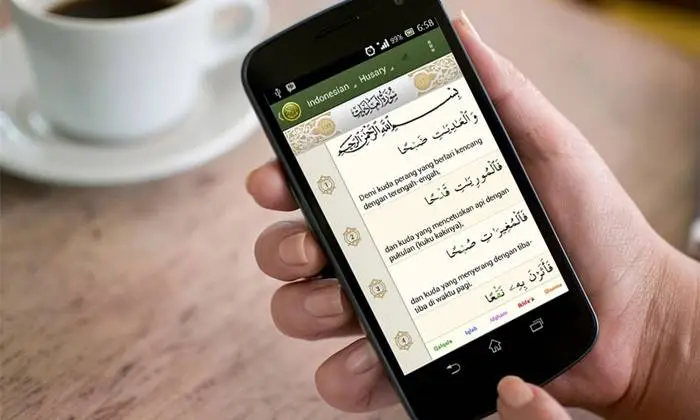 99% 6:58
Indonesian Husary
سورة العاديات
بِسْمِ اللَّهِ الرَّحْمَٰنِ الرَّحِيمِ
وَالْعَادِيَاتِ ضَبْحًا
1
Demi kuda perang yang berlari kencang
dengan terengah-engah,
فَالْمُورِيَاتِ قَدْحًا
2
dan kuda yang mencetuskan api dengan
pukulan (kuku kakinya),
فَالْمُغِيرَاتِ صُبْحًا
3
dan kuda yang menyerang dengan tiba-
tiba di waktu pagi,
فَأَثَرْنَ بِهِ نَقْعًا
4
Qalqala Iqlab Idgham Ikhfa'a Ghunna